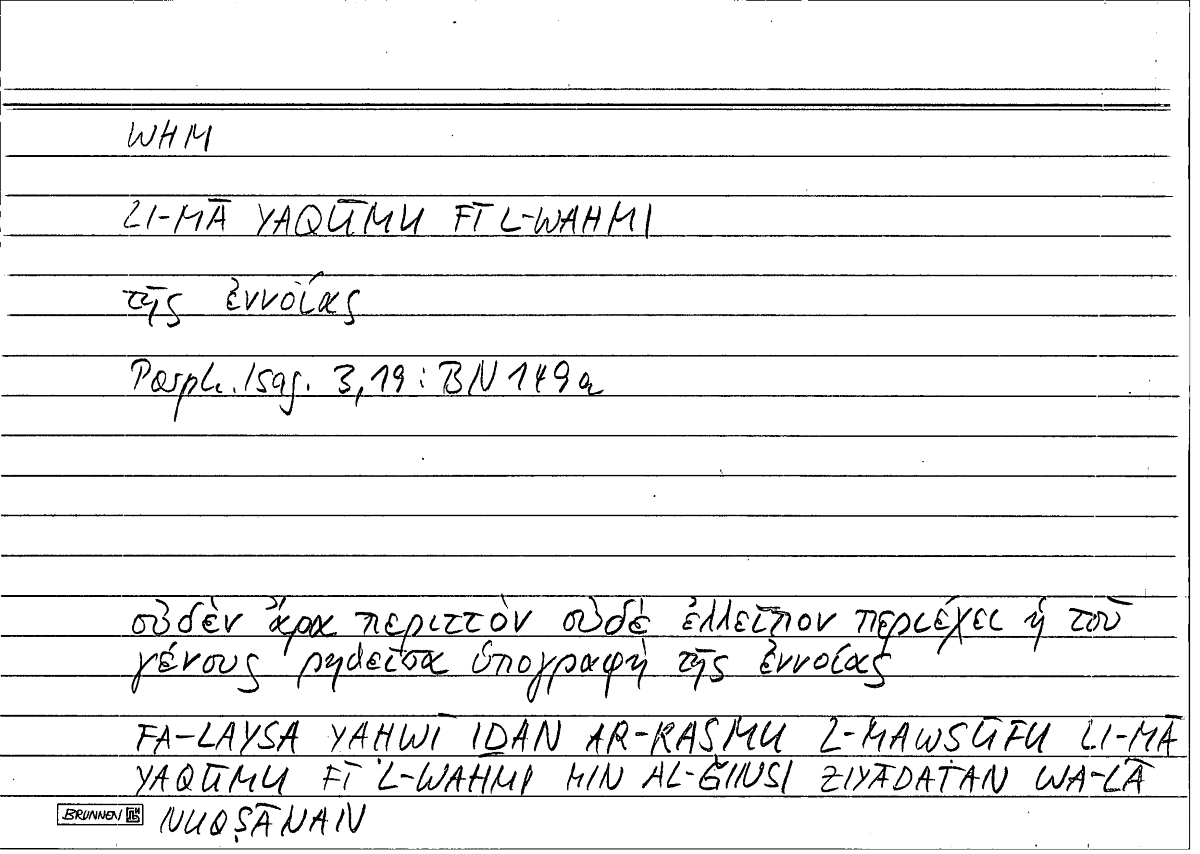 WHM
LI-MĀ YAQŪMU FĪ L-WAHMI
τῆς ἐννοίας
Porph. Isag. 3,19 : BN 149a
οὐδὲν ἄρα περιττὸν οὐδὲ ἐλλεῖπον περιέχει ἡ τοῦ
γένους ῥηθεῖσα ὑπογραφὴ τῆς ἐννοίας
FA-LAYSA YAHWĪ IḎAN AR-RASMU L-MAWSŪFU LI-MĀ
YAQŪMU FĪ L-WAHMI MIN AL-ǦINSI ZIYĀDATAN WA-LĀ
NUQṢĀNAN
BRUNNEN